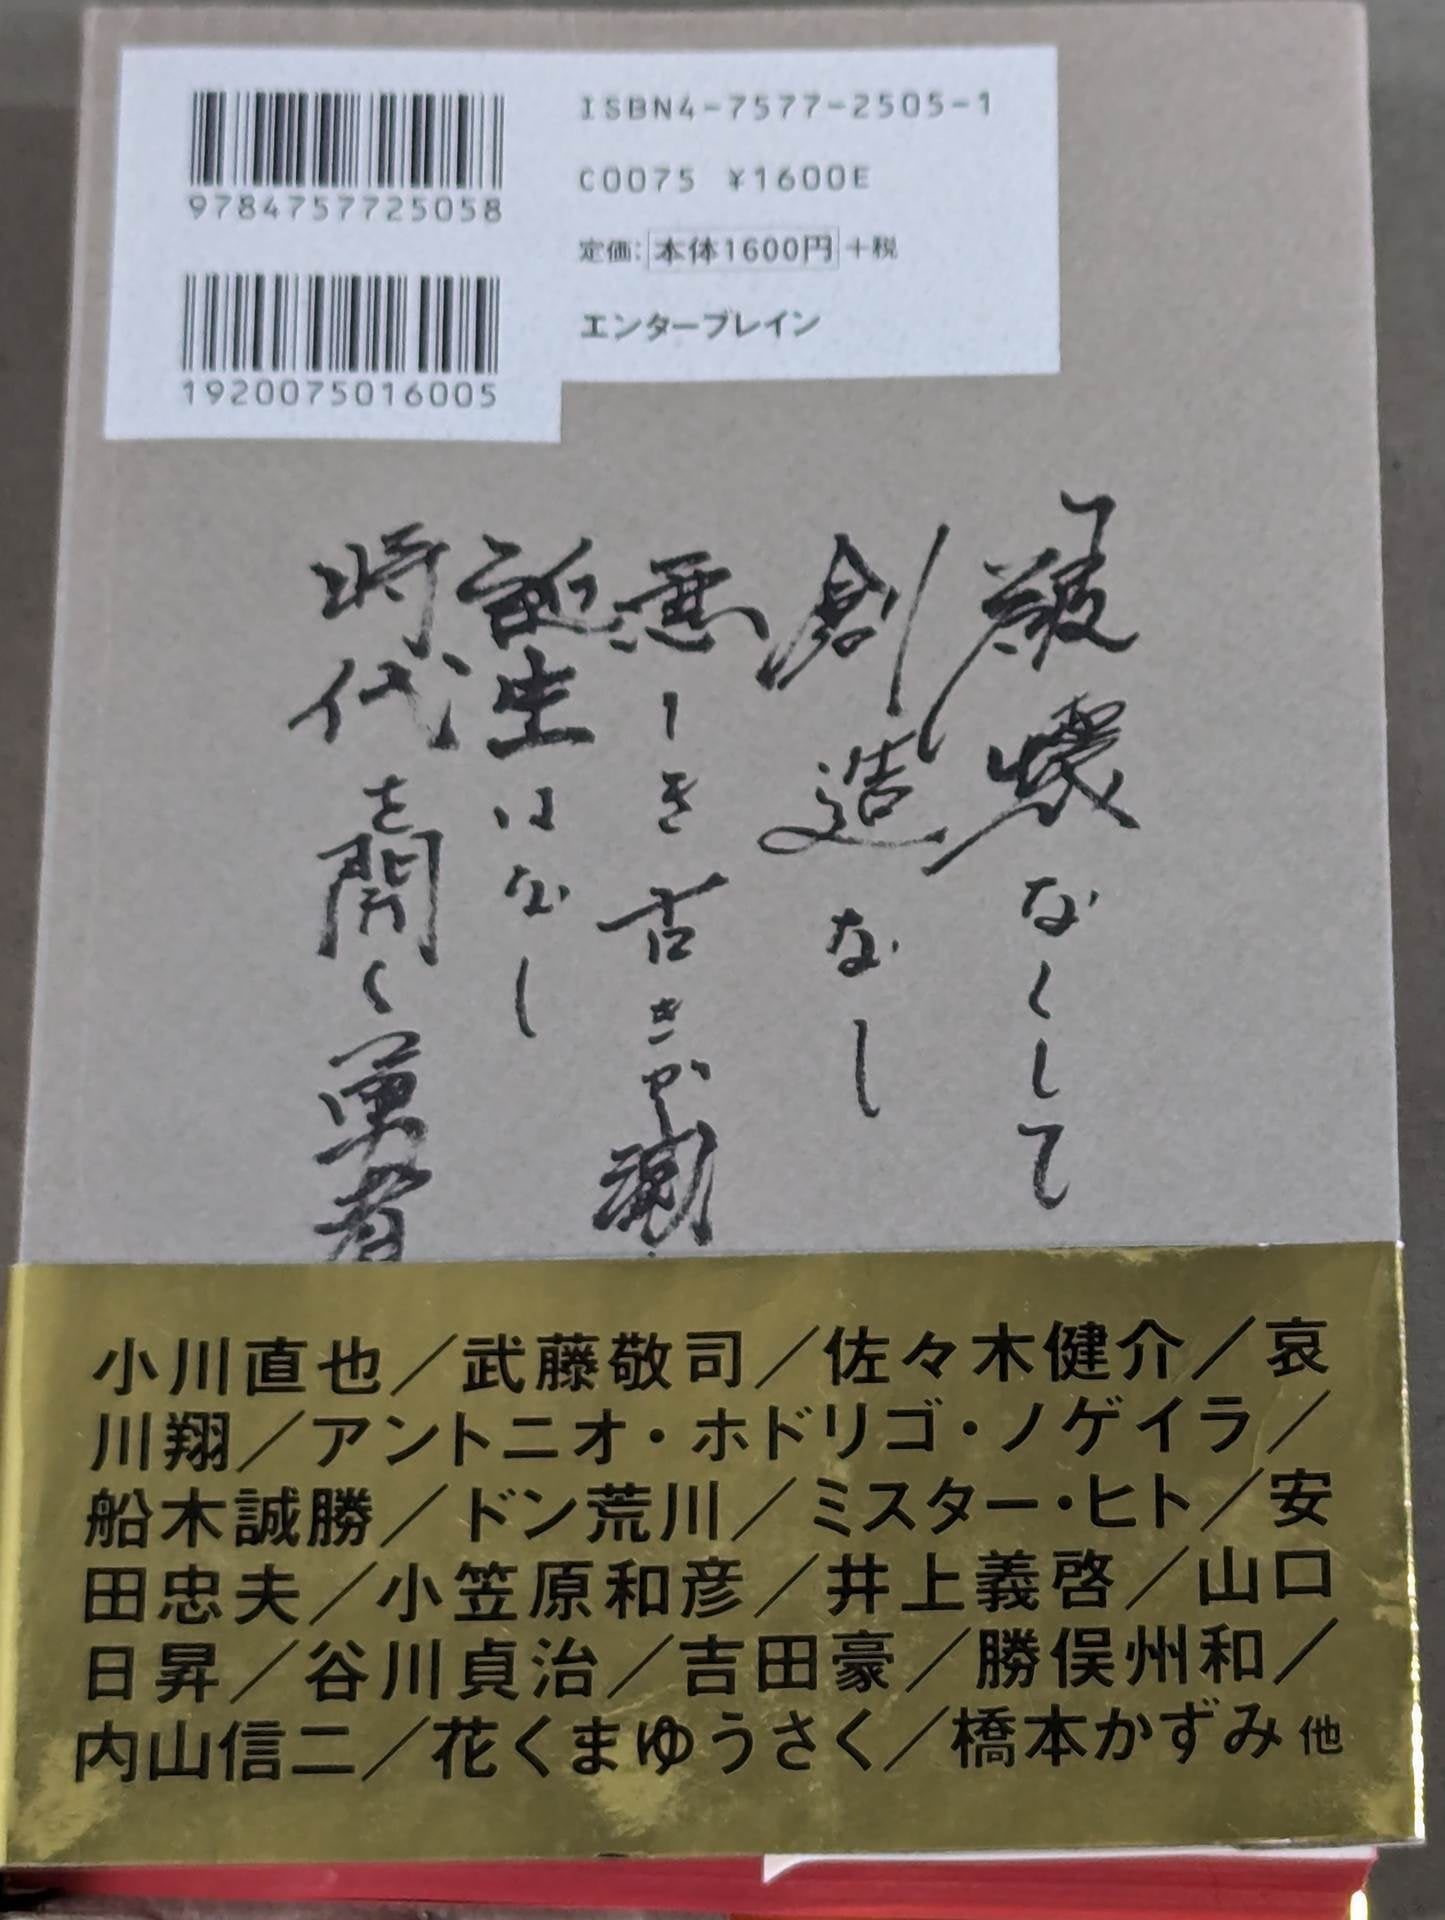 9784757725058
1920075016005
ISBN4-7577-2505-1
C0075 ¥1600E
定価:本体1600円+税
エンターブレイン
破壊なくして
創造なし
悪しき古きが
誕生はなし
時代を開く勇者
小川直也/武藤敬司/佐々木健介/哀
川翔/アントニオ・ホドリゴ・ノゲイラ/
船木誠勝/ドン荒川/ミスター・ヒト/安
田忠夫/小笠原和彦/井上義啓/山口
日昇/谷川貞治/吉田豪/勝俣州和/
内山信二/花くまゆうさく/橋本かずみ 他